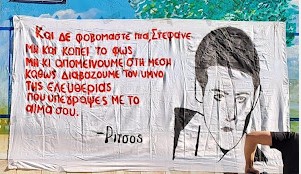 Και δε φοβόμαστε πια, Στέφανε
Μη και κοπεί το φως
Μη κι απομείνουμε στη μέση
καθώς διαβάζουμε τον ύμνο
της ελευθερίας
που υπέγραψες με το
αίμα σου.
-Ρίτσος